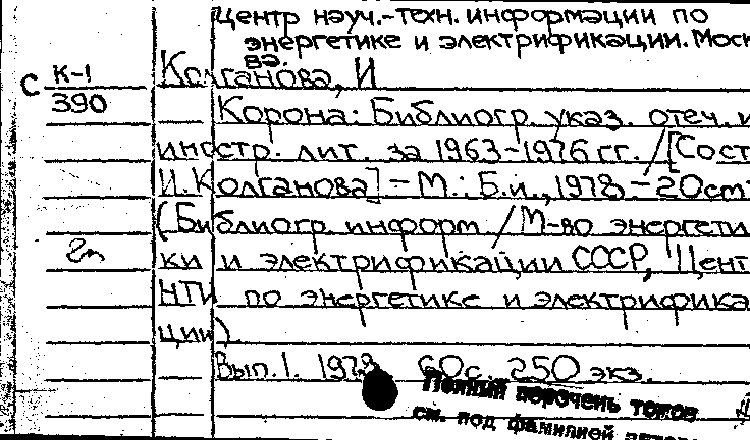 Центр науч.-техн. информации по
энергетике и электрификации. Моск
ва.
Колганова, И
С К-1
390
Корона: Библиогр. указ. отеч. и
иностр. лит. за 1963-1976 гг. /[Сост.
И. Колганова] – М.: Б.и., 1978. – 20см
(Библиогр. информ / М-во энергети
ки и электрификации СССР, Цент
2п
НТИ по энергетике и электрифика
ции).
Вып. 1. 1978 60с. 250 экз.
Полный перечень томов
см. под фамилией